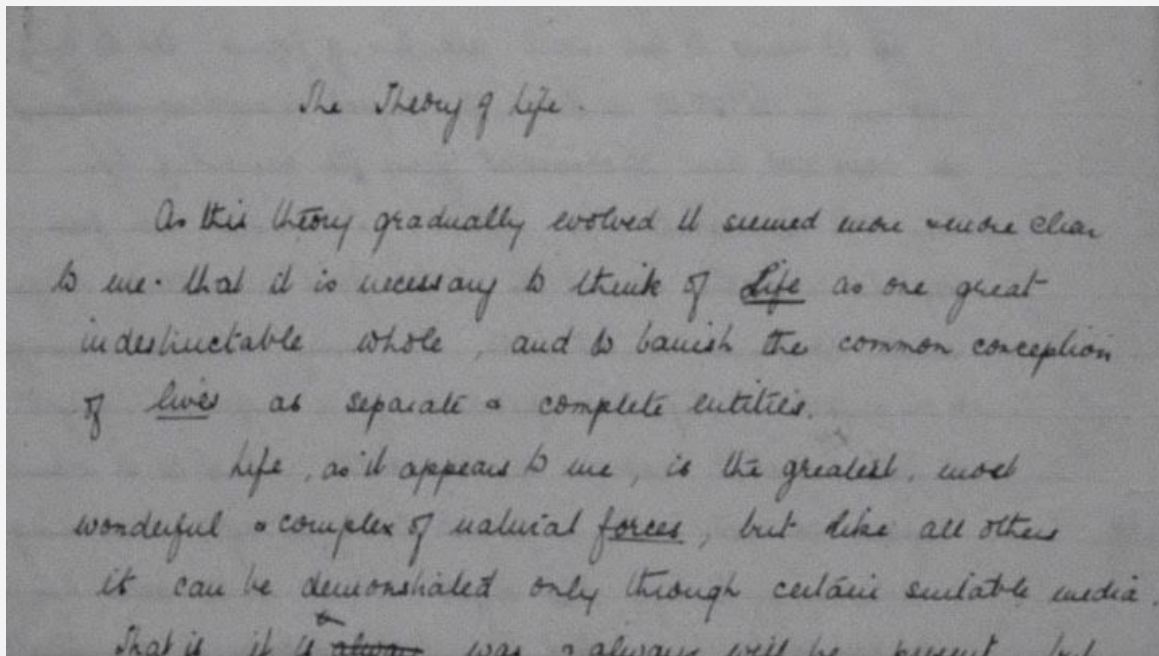 The Theory of Life.
As this theory gradually evolved it seemed more & more clear
to me that it is necessary to think of Life as one great
indestructable whole, and to banish the common conception
of lives as separate & complete entities.
Life, as it appears to me, is the greatest, most
wonderful & complex of natural forces, but like all others
it can be demonstrated only through certain suitable media.
That is it is was & always will be present, but